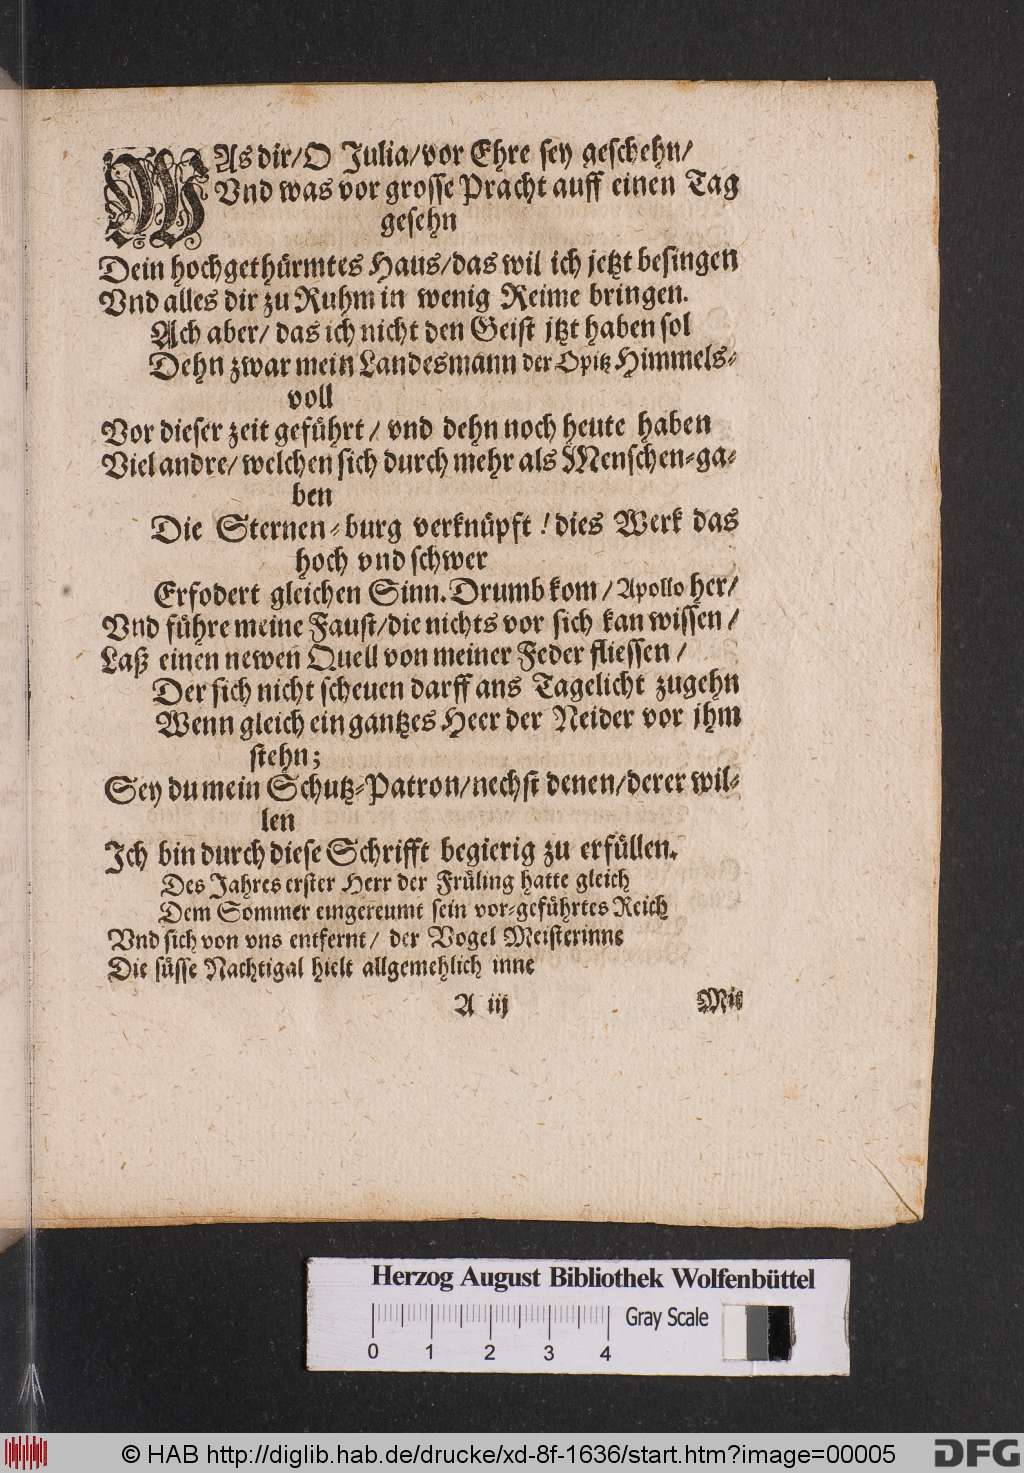 WAs dir/ O Julia/ vor Ehre sey geschehn/
Vnd was vor grosse Pracht auff einen Tag
gesehn
Dein hochgethürmtes Haus/ das wil ich jetzt besingen
Vnd alles dir zu Ruhm in wenig Reime bringen.
Ach aber/ das ich nicht den Geist jtzt haben sol
Dehn zwar mein Landesmann der Opitz Himmels-
voll
Vor dieser zeit geführt/ vnd dehn noch heute haben
Viel andre/ welchen sich durch mehr als Menschen-ga-
ben
Die Sternen-burg verknüpft! dies Werk das
hoch vnd schwer
Erfodert gleichen Sinn. Drumb kom/ Apollo her/
Vnd führe meine Faust/ die nichts vor sich kan wissen/
Laß einen newen Quell von meiner Feder fliessen/
Der sich nicht scheuen darff ans Tagelicht zugehn
Wenn gleich ein gantzes Heer der Neider vor jhm
stehn;
Sey du mein Schutz-Patron/ nechst denen/ derer wil-
len
Ich bin durch diese Schrifft begierig zu erfüllen.
Des Jahres erster Herr der Früling hatte gleich
Dem Sommer eingereumt sein vor-geführtes Reich
Vnd sich von vns entfernt/ der Vogel Meisterinne
Die süsse Nachtigal hielt allgemehlich inne
A iij Mit
Herzog August Bibliothek Wolfenbüttel
Gray Scale
0 1 2 3 4
© HAB http://diglib.hab.de/drucke/xd-8f-1636/start.htm?image=00005
DFG